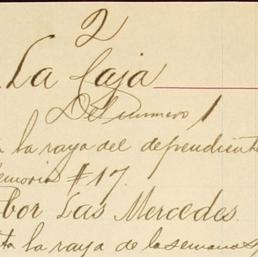 2
La Caja
Del numero 1
la raya del dependiente
Memoria #17.
bor Las Mercedes
ta la raya de la semana